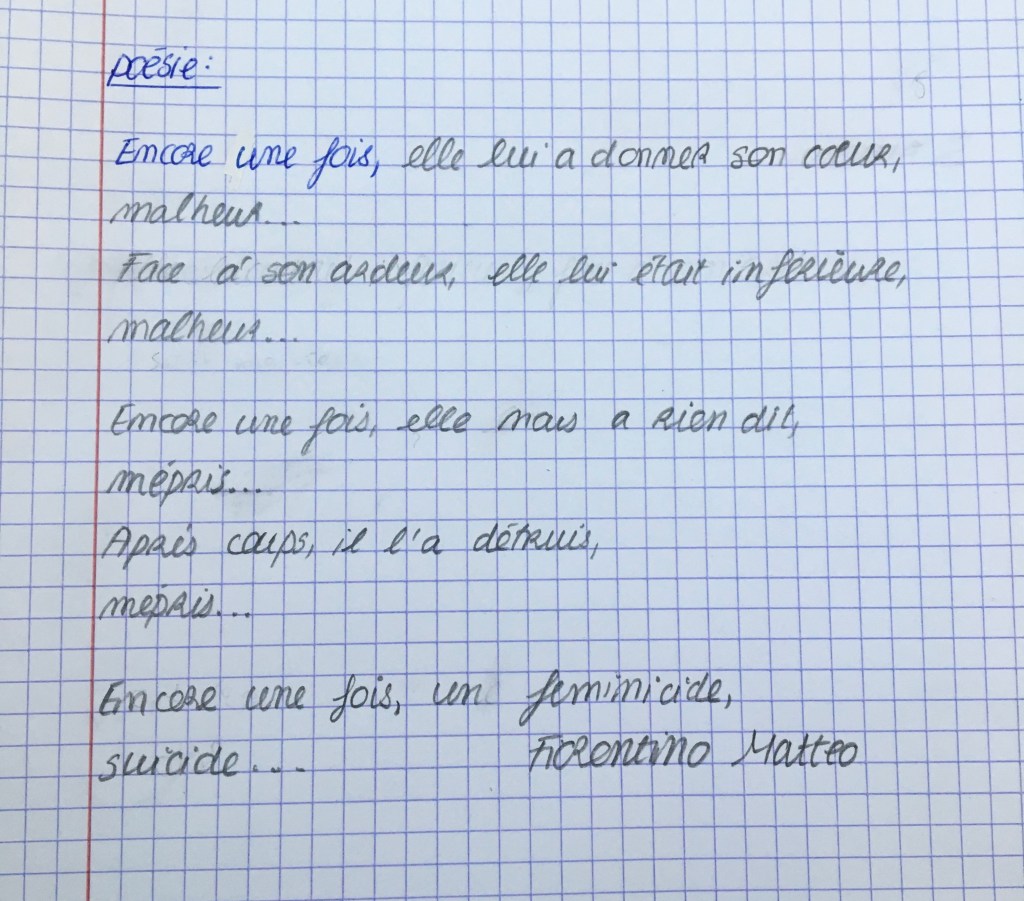 poésie:
Encore une fois, elle lui a donner son cœur,
malheur...
Face à son ardeur, elle lui était inférieure,
malheur...
Encore une fois, elle mais a rien dit,
mépris...
Après coups, il l'a détruis,
mépris...
Encore une fois, un feminicide,
suicide... Fiorentino Matteo